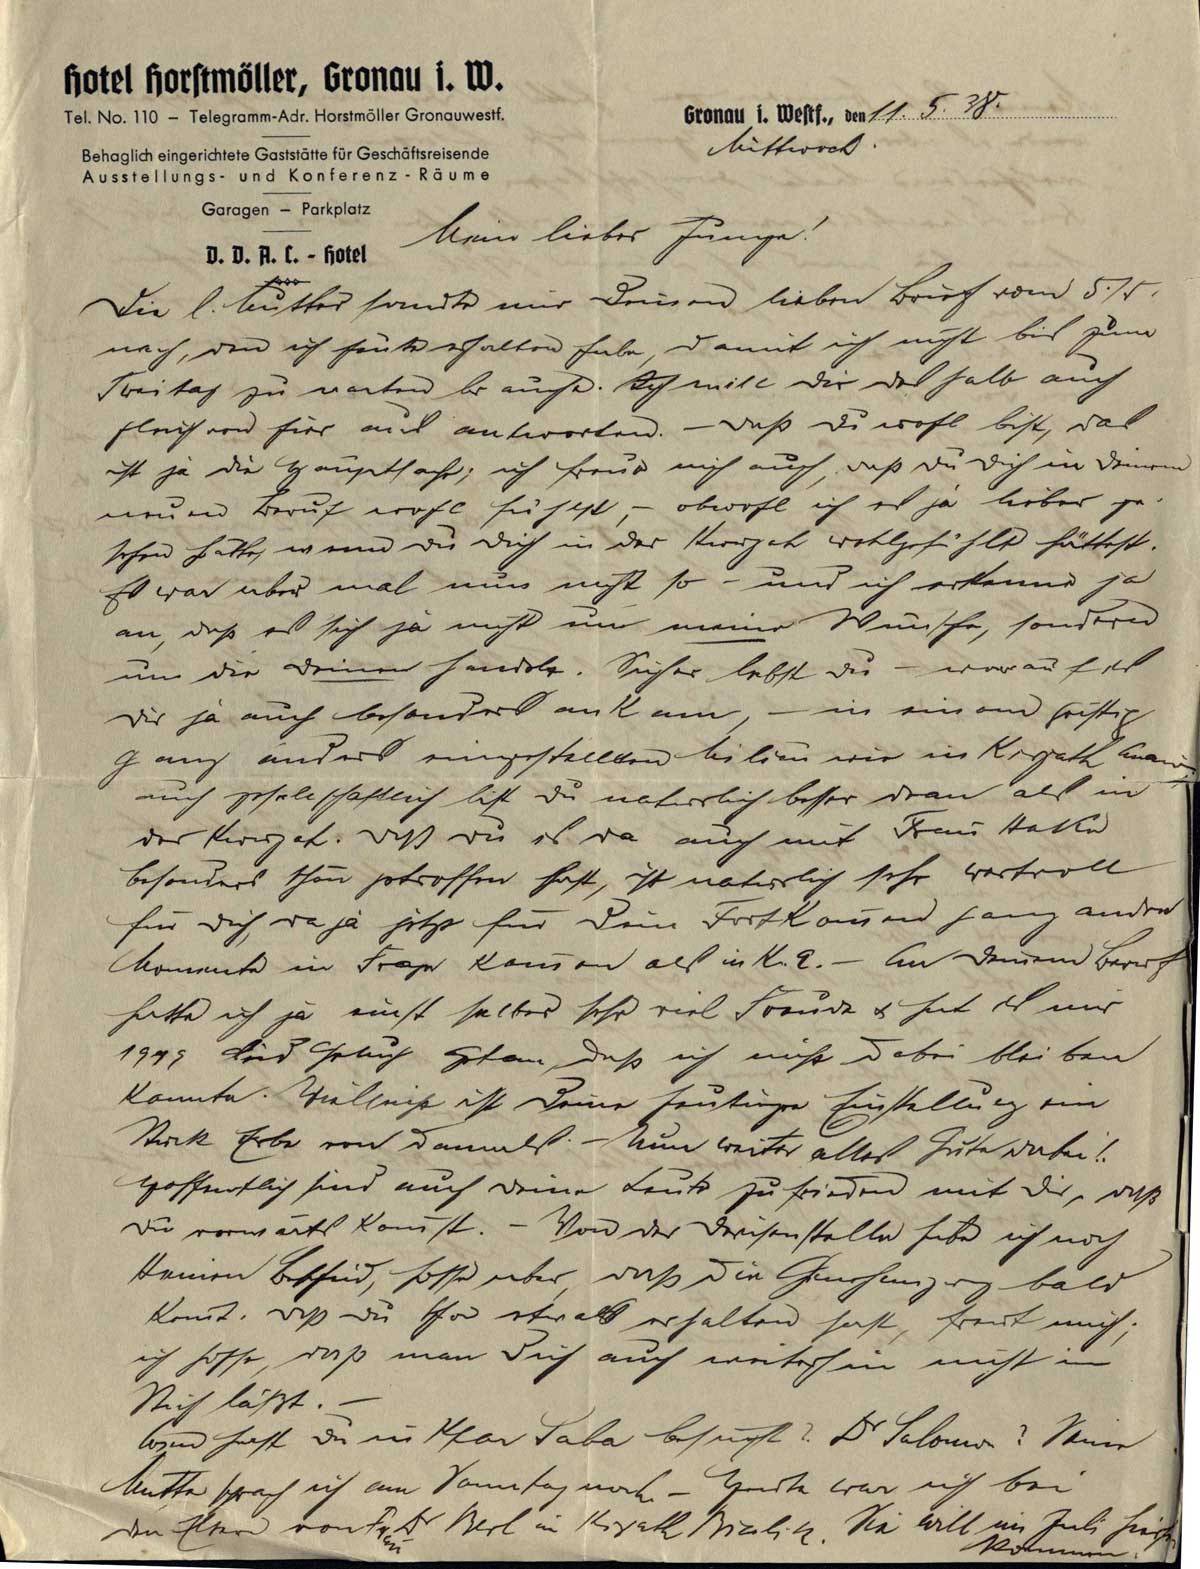 Hotel Horstmöller, Gronau i. W.
Tel. No. 110 – Telegramm-Adr. Horstmöller Gronauwestf.
Behaglich eingerichtete Gaststätte für Geschäftsreisende
Ausstellungs- und Konferenz-Räume
Garagen – Parkplatz
D. D. A. C. - Hotel
Gronau i. Westf., den 11. 5. 38.
Mittwoch.
Mein lieber Junge!
Die l. Mutter sandte mir Deinen lieben Brief vom 5./5.
nach, den ich heute erhalten habe, damit ich nicht bis zum
Freitag zu warten brauche. Ich will Dir deshalb auch
gleich von hier aus antworten. – Daß Du wohl bist, das
ist ja die Hauptsache; ich freue mich auch, daß Du Dich in Deinem
neuen Beruf wohl fühlst, – obwohl ich es ja lieber ge-
sehen hätte, wenn Du Dich in der Kwuzah wohlgefühlt hättest.
Es war aber mal nun nicht so – und ich erkenne ja
an, daß es sich ja nicht um meine Wünsche, sondern
um die Deinen handelt. Sicher lebst Du – worauf es
Dir ja auch besonders ankam, – in einem geistig
ganz anders eingestellten Milieu wie in Kirjath Anawim
auch gesellschaftlich bist Du natürlich besser dran als in
der Kwuzah. Daß Du es da auch mit Frau
besonders schön getroffen hast, ist natürlich sehr wertvoll
für Dich, da ja jetzt für Dein Fortkommen ganz andere
Momente in Frage kommen als in K. A. – An Deinem Beruf
hatte ich ja einst selber sehr viel Freude & hat es mir
genug getan, daß ich nicht dabei bleiben
konnte. Vielleicht ist Deine heutige Einstellung ein
Stück Erbe von damals. – Nun weiter alles Gute dabei!
Hoffentlich sind auch Deine Leute zufrieden mit Dir, daß
Du vorwärts kommst. – Von der Devisenstelle habe ich noch
keinen Bescheid, hoffe aber, daß die Genehmigung bald
kommt. Daß Du schon etwas erhalten hast, freut mich;
ich hoffe, daß man Dich auch weiterhin nicht im
Stich läßt. –
Wen hast Du in Kfar Saba besucht? Dr Salomon? Seine
Mutter sprach ich am Sonntag noch. – Heute war ich bei
den Eltern von Frau Dr Berl in Kirjath Bialik. Sie will im Juli hierher
kommen.